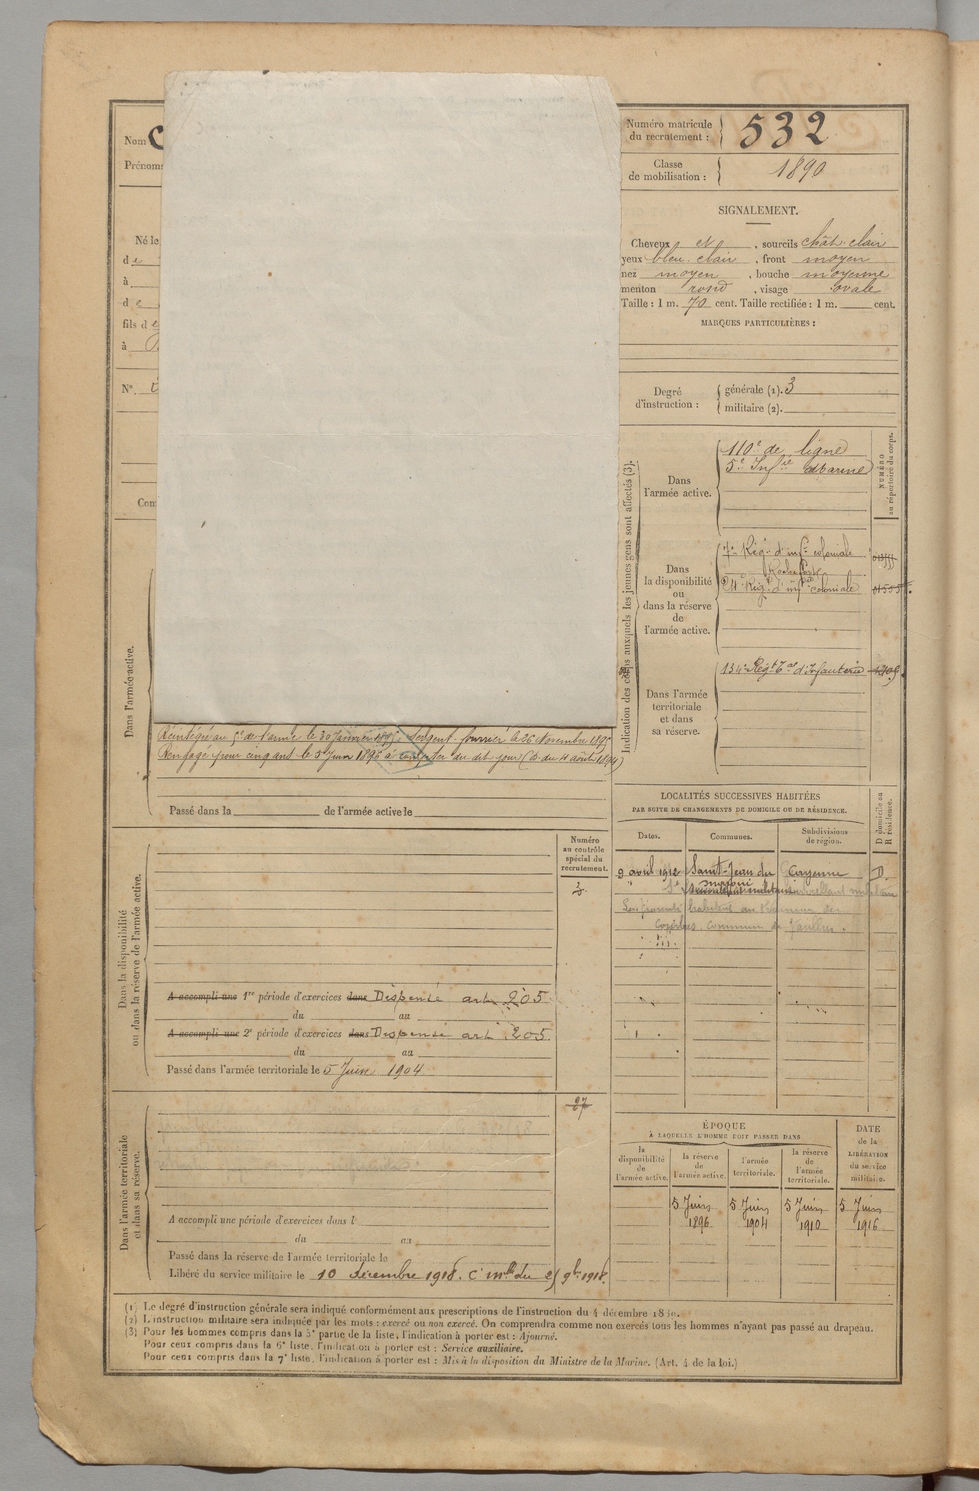 Nom C
Prénoms
Né le
de
à
de
fils de
à
N°.
Com
Dans l'armée active.
Réintégré au 5e de l'arme le 30 Janvier 1895, Sergent-fourrier le 26 Novembre 1895
Rengagé pour cinq ans le 5 Juin 1896 à compter du dit jour (D. du 4 août 1894)
Passé dans la de l'armée active le
Numéro matricule
du recrutement : 532
Classe
de mobilisation : 1890
SIGNALEMENT.
Cheveux et , sourcils chât. clair
yeux bleu. clair , front moyen
nez moyen , bouche moyenne
menton rond , visage ovale
Taille : 1 m. 70 cent. Taille rectifiée : 1 m. cent.
MARQUES PARTICULIÈRES :
Degré
d'instruction :
générale (1). 3
militaire (2).
Indication des corps auxquels les jeunes gens sont affectés (3).
NUMÉRO
au répertoire du corps.
Dans
l'armée active.
110e de ligne
5e Infie Marine
Dans
la disponibilité
ou
dans la réserve
de
l'armée active.
7e Rég. d'infie coloniale
Rochefort
Rég. d'infie coloniale
Dans l'armée
territoriale
et dans
sa réserve.
134e Régt Tal d'Infanterie
LOCALITÉS SUCCESSIVES HABITÉES
PAR SUITE DE CHANGEMENTS DE DOMICILE OU DE RÉSIDENCE.
Dates. Communes. Subdivisions de région. D domicile ou R résidence.
9 avril 1912 Saint-Jean du Maroni Cayenne D.
surveillant militaire
habitué au
commune de
Dans la disponibilité
ou dans la réserve de l'armée active.
Numéro
au contrôle
spécial du
recrutement.
A accompli une 1re période d'exercices dans Dispensé art. 205
du au
A accompli une 2e période d'exercices dans Dispensé art. 205
du au
Passé dans l'armée territoriale le 5 Juin 1904
Dans l'armée territoriale
et dans sa réserve.
27
A accompli une période d'exercices dans l
du au
Passé dans la réserve de l'armée territoriale le
Libéré du service militaire le 10 décembre 1918. C. mlle du 25 9bre 1918.
ÉPOQUE
À LAQUELLE L'HOMME DOIT PASSER DANS
la disponibilité de l'armée active.
la réserve de l'armée active.
l'armée territoriale.
la réserve de l'armée territoriale.
DATE de la LIBÉRATION du service militaire.
5 Juin 5 Juin 5 Juin 5 Juin
1896 1904 1910 1916
(1) Le degré d'instruction générale sera indiqué conformément aux prescriptions de l'instruction du 4 décembre 1889.
(2) L'instruction militaire sera indiquée par les mots : exercé ou non exercé. On comprendra comme non exercés tous les hommes n'ayant pas passé au drapeau.
(3) Pour les hommes compris dans la 5e partie de la liste, l'indication à porter est : Ajourné.
Pour ceux compris dans la 6e liste, l'indication à porter est : Service auxiliaire.
Pour ceux compris dans la 7e liste, l'indication à porter est : Mis à la disposition du Ministre de la Marine. (Art. 4 de la loi.)